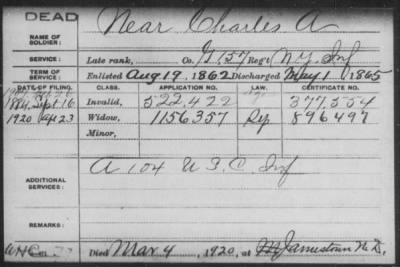 DEAD
Near Charles A
NAME OF SOLDIER:
SERVICE: Late rank, Co. G 157 Reg't N.Y. Inf
TERM OF SERVICE: Enlisted Aug 19, 1862 Discharged May 1, 1865
DATE OF FILING. CLASS. APPLICATION NO. LAW. CERTIFICATE NO.
1884 Sept 16 Invalid, 522,422 377,554
1920 Ap 23 Widow, 1156357 896497
Minor,
A 104 U.S.C. Inf
ADDITIONAL SERVICES:
REMARKS:
Died Mar 4, 1920, at Jamestown N.D.